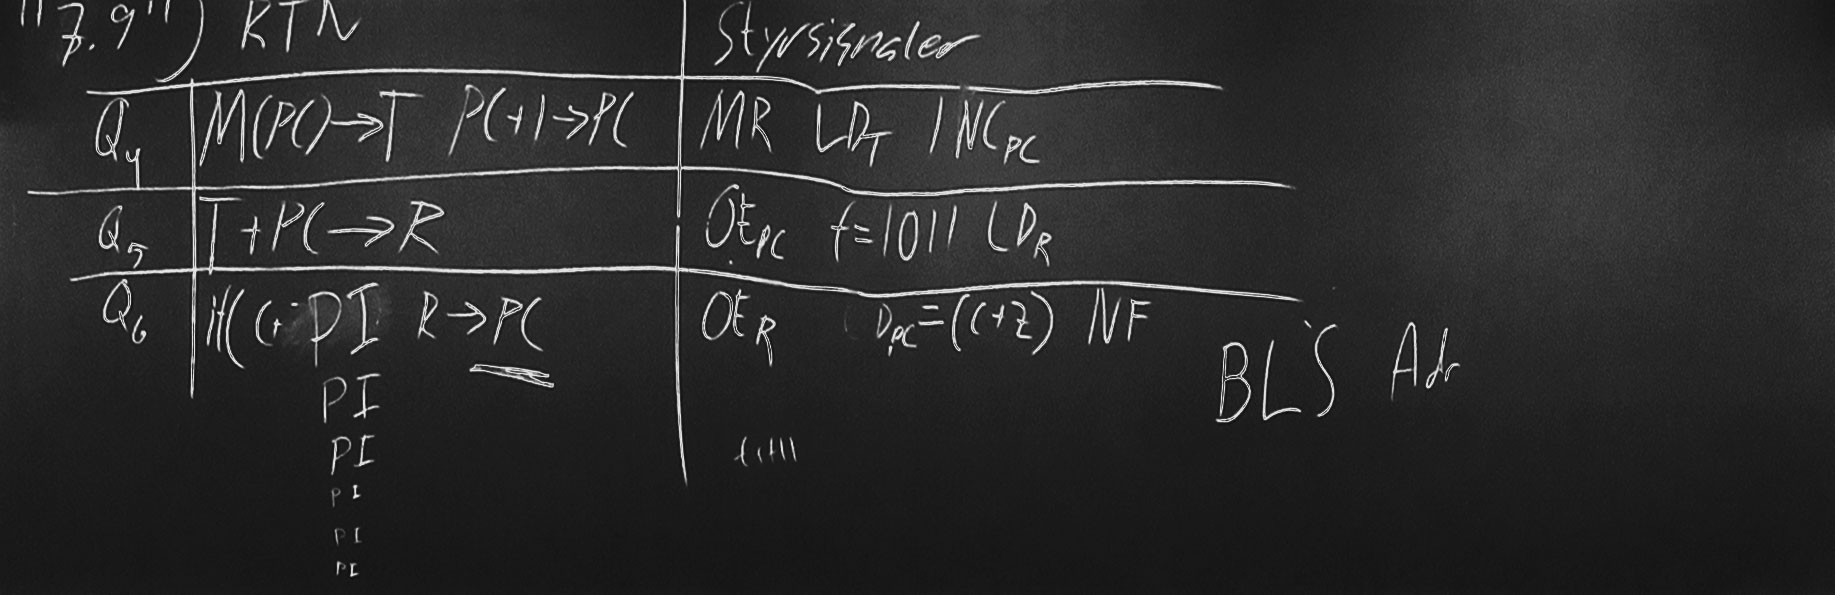 "7.9") RTN Styrsignaler
Q4 M(PC)→T PC+1→PC MR LDT INCPC
Q5 T+PC→R OEPC f=1011 LDR
Q6 if(C+ PI R→PC OER DPC=(C+Z) NF
BLS Adr
PI
PI
PI
PI
PI